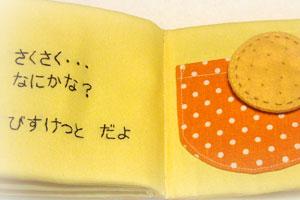 さくさく・・・
なにかな?
びすけっと だよ